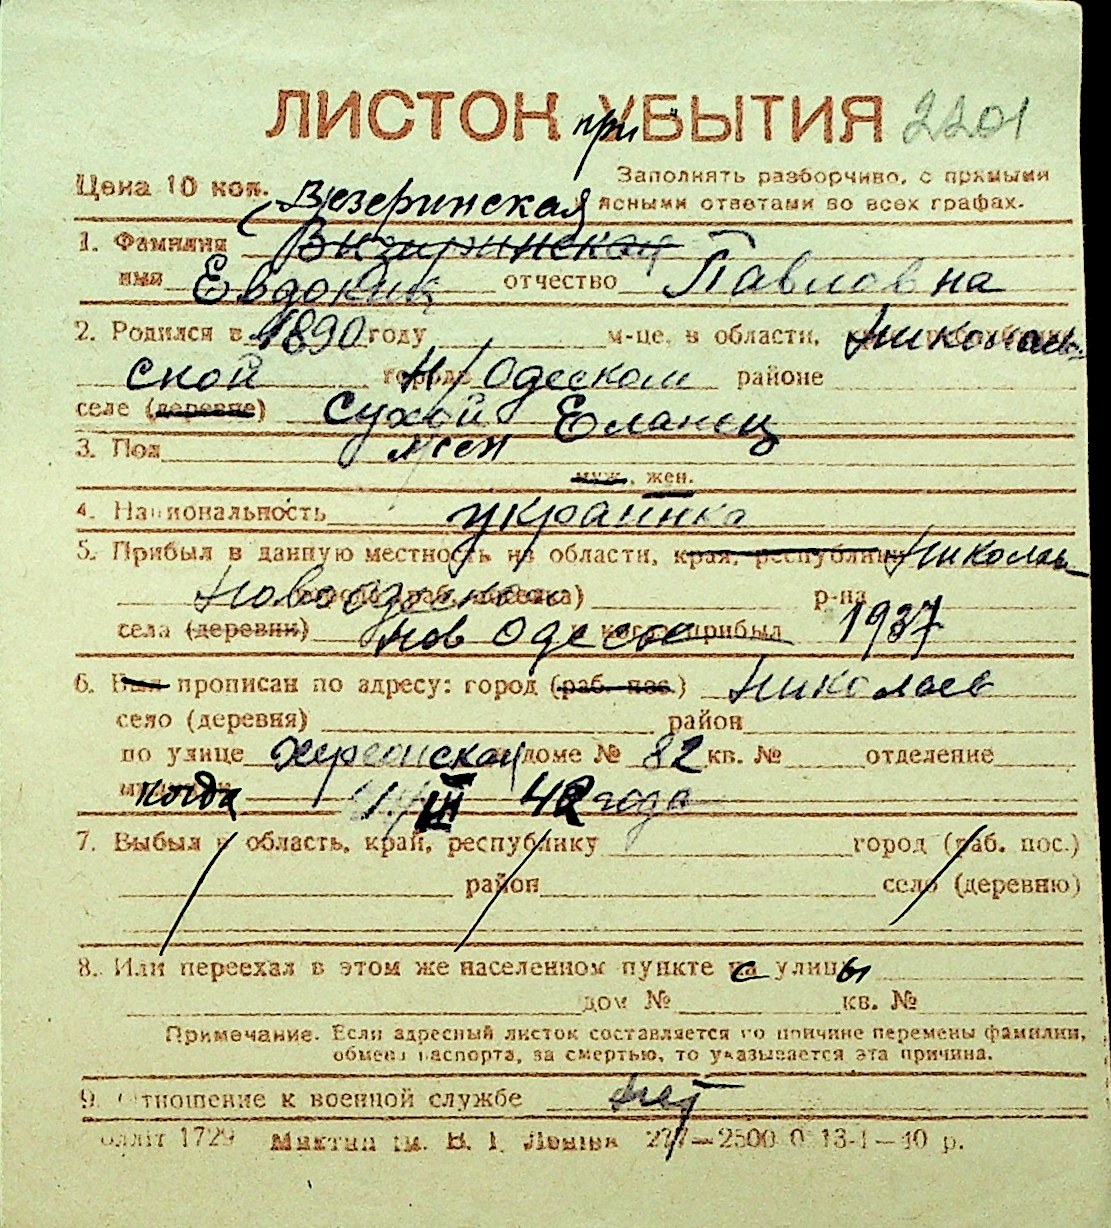 ЛИСТОК при УБЫТИЯ 2201
Цена 10 коп. Заполнять разборчиво, с прямыми
Везеринская и ясными ответами во всех графах.
1. Фамилия Визиринская
имя Евдокия отчество Павловна
2. Родился в 1890 году м-це, в области, Николаев-
ской городе Н/Одеском районе
селе (деревне) Сухой Еланец
3. Пол жен
муж., жен.
4. Национальность украинка
5. Прибыл в данную местность из области, края, республики Николаев
Новоодеского р-на
села (деревни) Нов Одесы и когда прибыл 1937
6. Был прописан по адресу: город (раб. пос.) Николаев
село (деревня) район
по улице Херсонская доме № 82 кв. № отделение
милиции когда III 42 года
7. Выбыл в область, край, республику город (раб. пос.)
район село (деревню)
8. Или переехал в этом же населенном пункте с улицы
дом № кв. №
Примечание. Если адресный листок составляется по причине перемены фамилии,
обмена паспорта, за смертью, то указывается эта причина.
9. Отношение к военной службе нет
блліт 1729 Миктип ім. В. І. Леніна 277—2500 0 13-І—40 р.